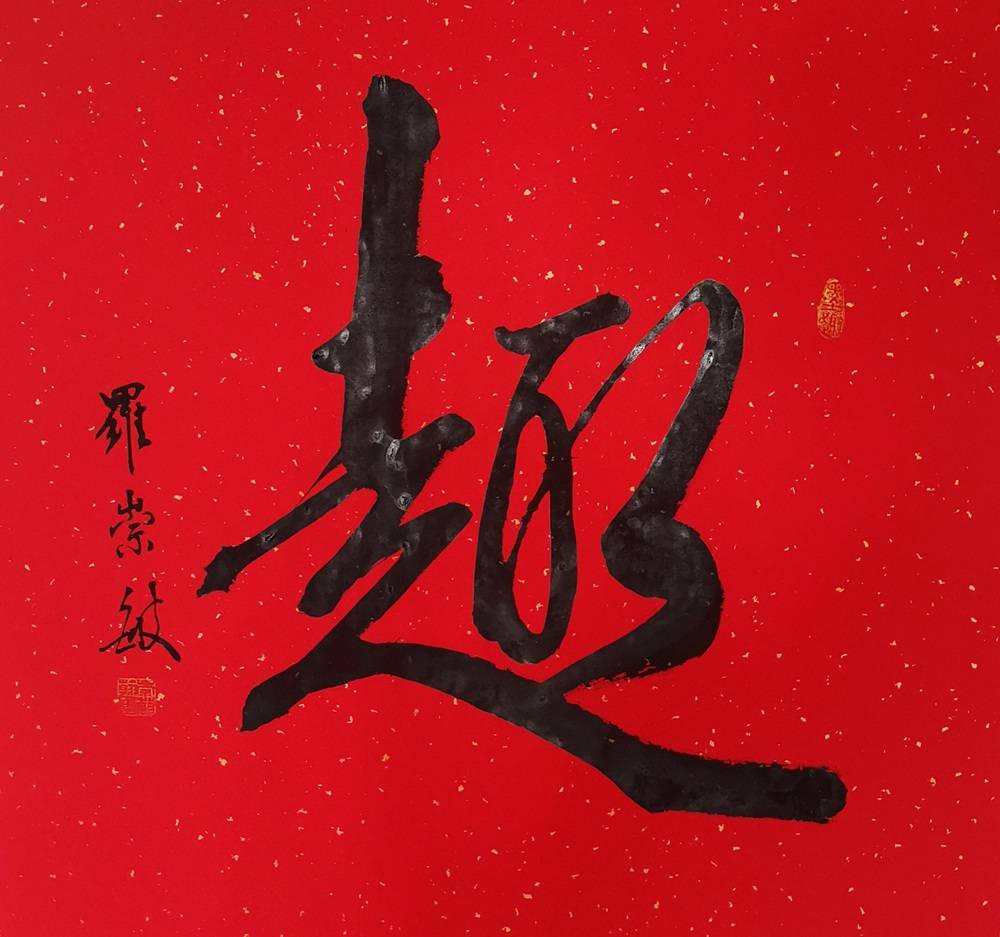 趣
羅崇敏